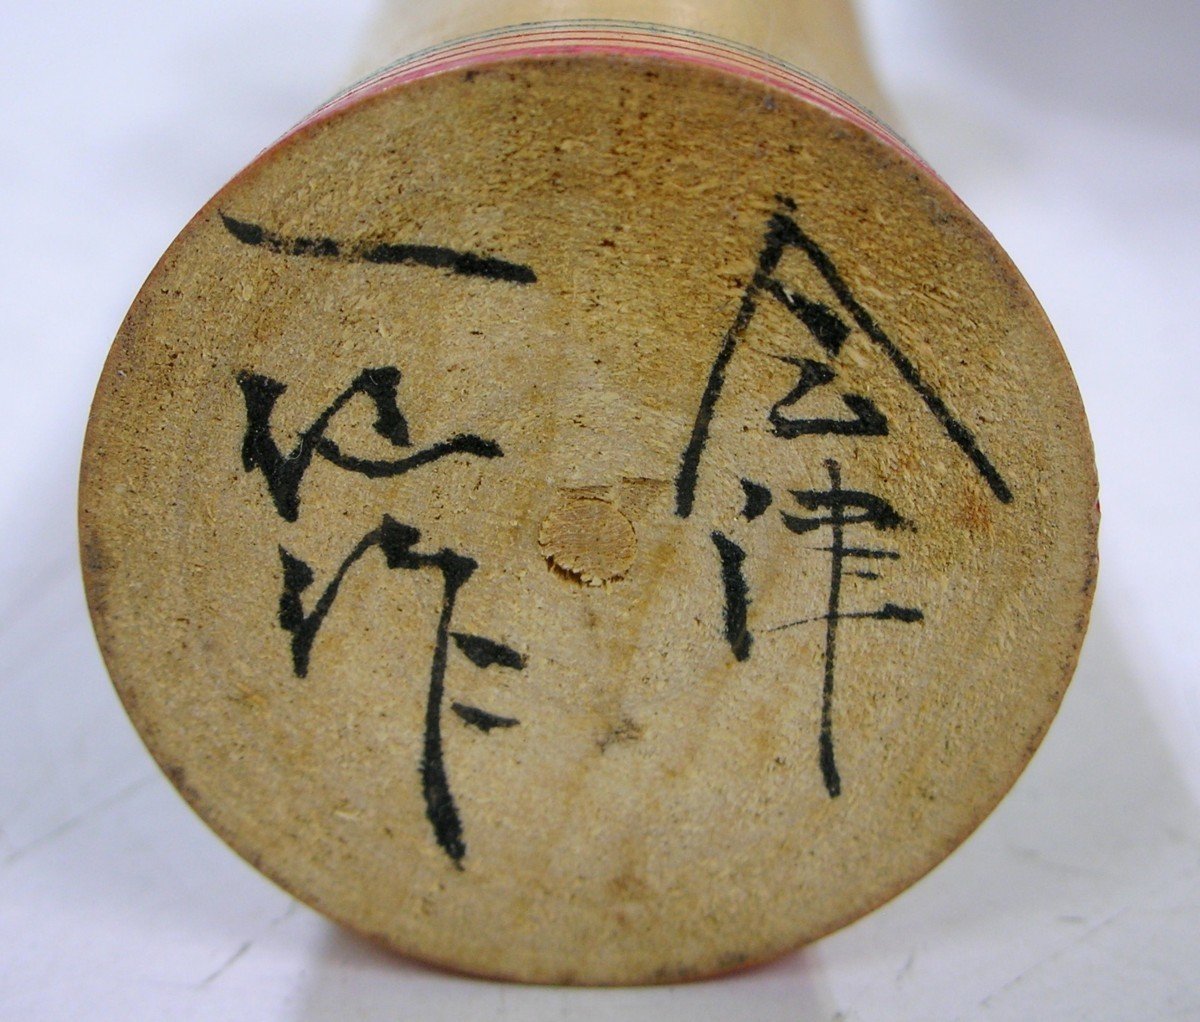 会津
一也作